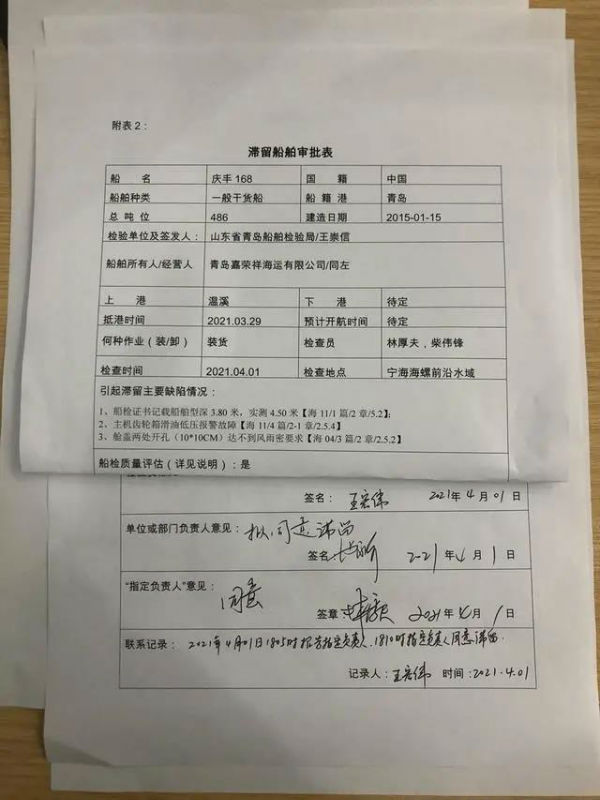 附表2：
滞留船舶审批表
船 名 庆丰168 国 籍 中国
船舶种类 一般干货船 船 籍 港 青岛
总 吨 位 486 建造日期 2015-01-15
检验单位及签发人： 山东省青岛船舶检验局/王崇信
船舶所有人/经营人 青岛嘉荣祥海运有限公司/同左
上 港 温溪 下 港 待定
抵港时间 2021.03.29 预计开航时间 待定
何种作业（装/卸） 装货 检查员 林厚夫，柴伟锋
检查时间 2021.04.01 检查地点 宁海海螺前沿水域
引起滞留主要缺陷情况：
1、船检证书记载船舶型深 3.80 米，实测 4.50 米【海 11/1 篇/2 章/5.2】；
2、主机齿轮箱滑油低压报警故障【海 11/4 篇/2-1 章/2.5.4】
3、舱盖两处开孔（10*10CM）达不到风雨密要求【海 04/3 篇/2 章/5.2】
船检质量评估（详见说明）：是
签名： 2021年4月01日
单位或部门负责人意见： 拟同意滞留
签名 2021年4月1日
“指定负责人”意见： 同意
签章： 2021年4月1日
联系记录： 2021年4月01日1805时报告指定负责人，1810时指定负责人同意滞留.
记录人： 时间：2021.4.01